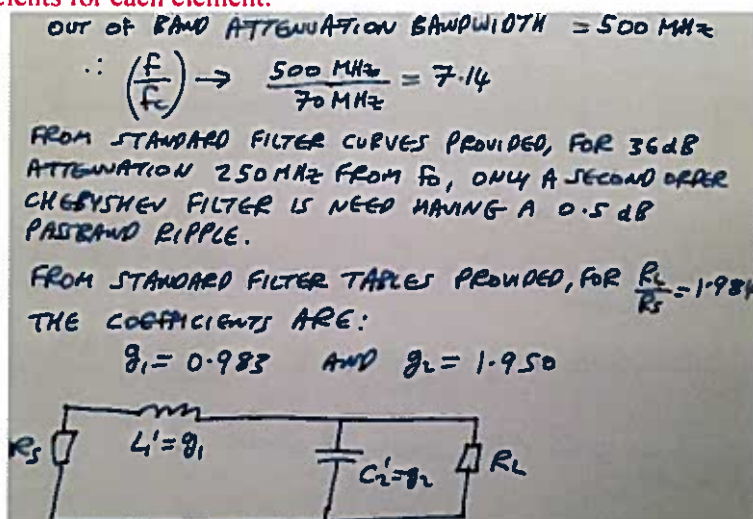 for each element.
OUT OF BAND ATTENUATION BANDWIDTH = 500 MHz
∴ (f/fc) → 500 MHz / 70 MHz = 7.14
FROM STANDARD FILTER CURVES PROVIDED, FOR 36dB
ATTENUATION 250 MHz FROM fo, ONLY A SECOND ORDER
CHEBYSHEV FILTER IS NEED HAVING A 0.5 dB
PASSBAND RIPPLE.
FROM STANDARD FILTER TABLES PROVIDED, FOR RL/RS = 1.984
THE COEFFICIENTS ARE:
g1 = 0.983 AND g2 = 1.950
RS L1' = g1 C2' = g2 RL